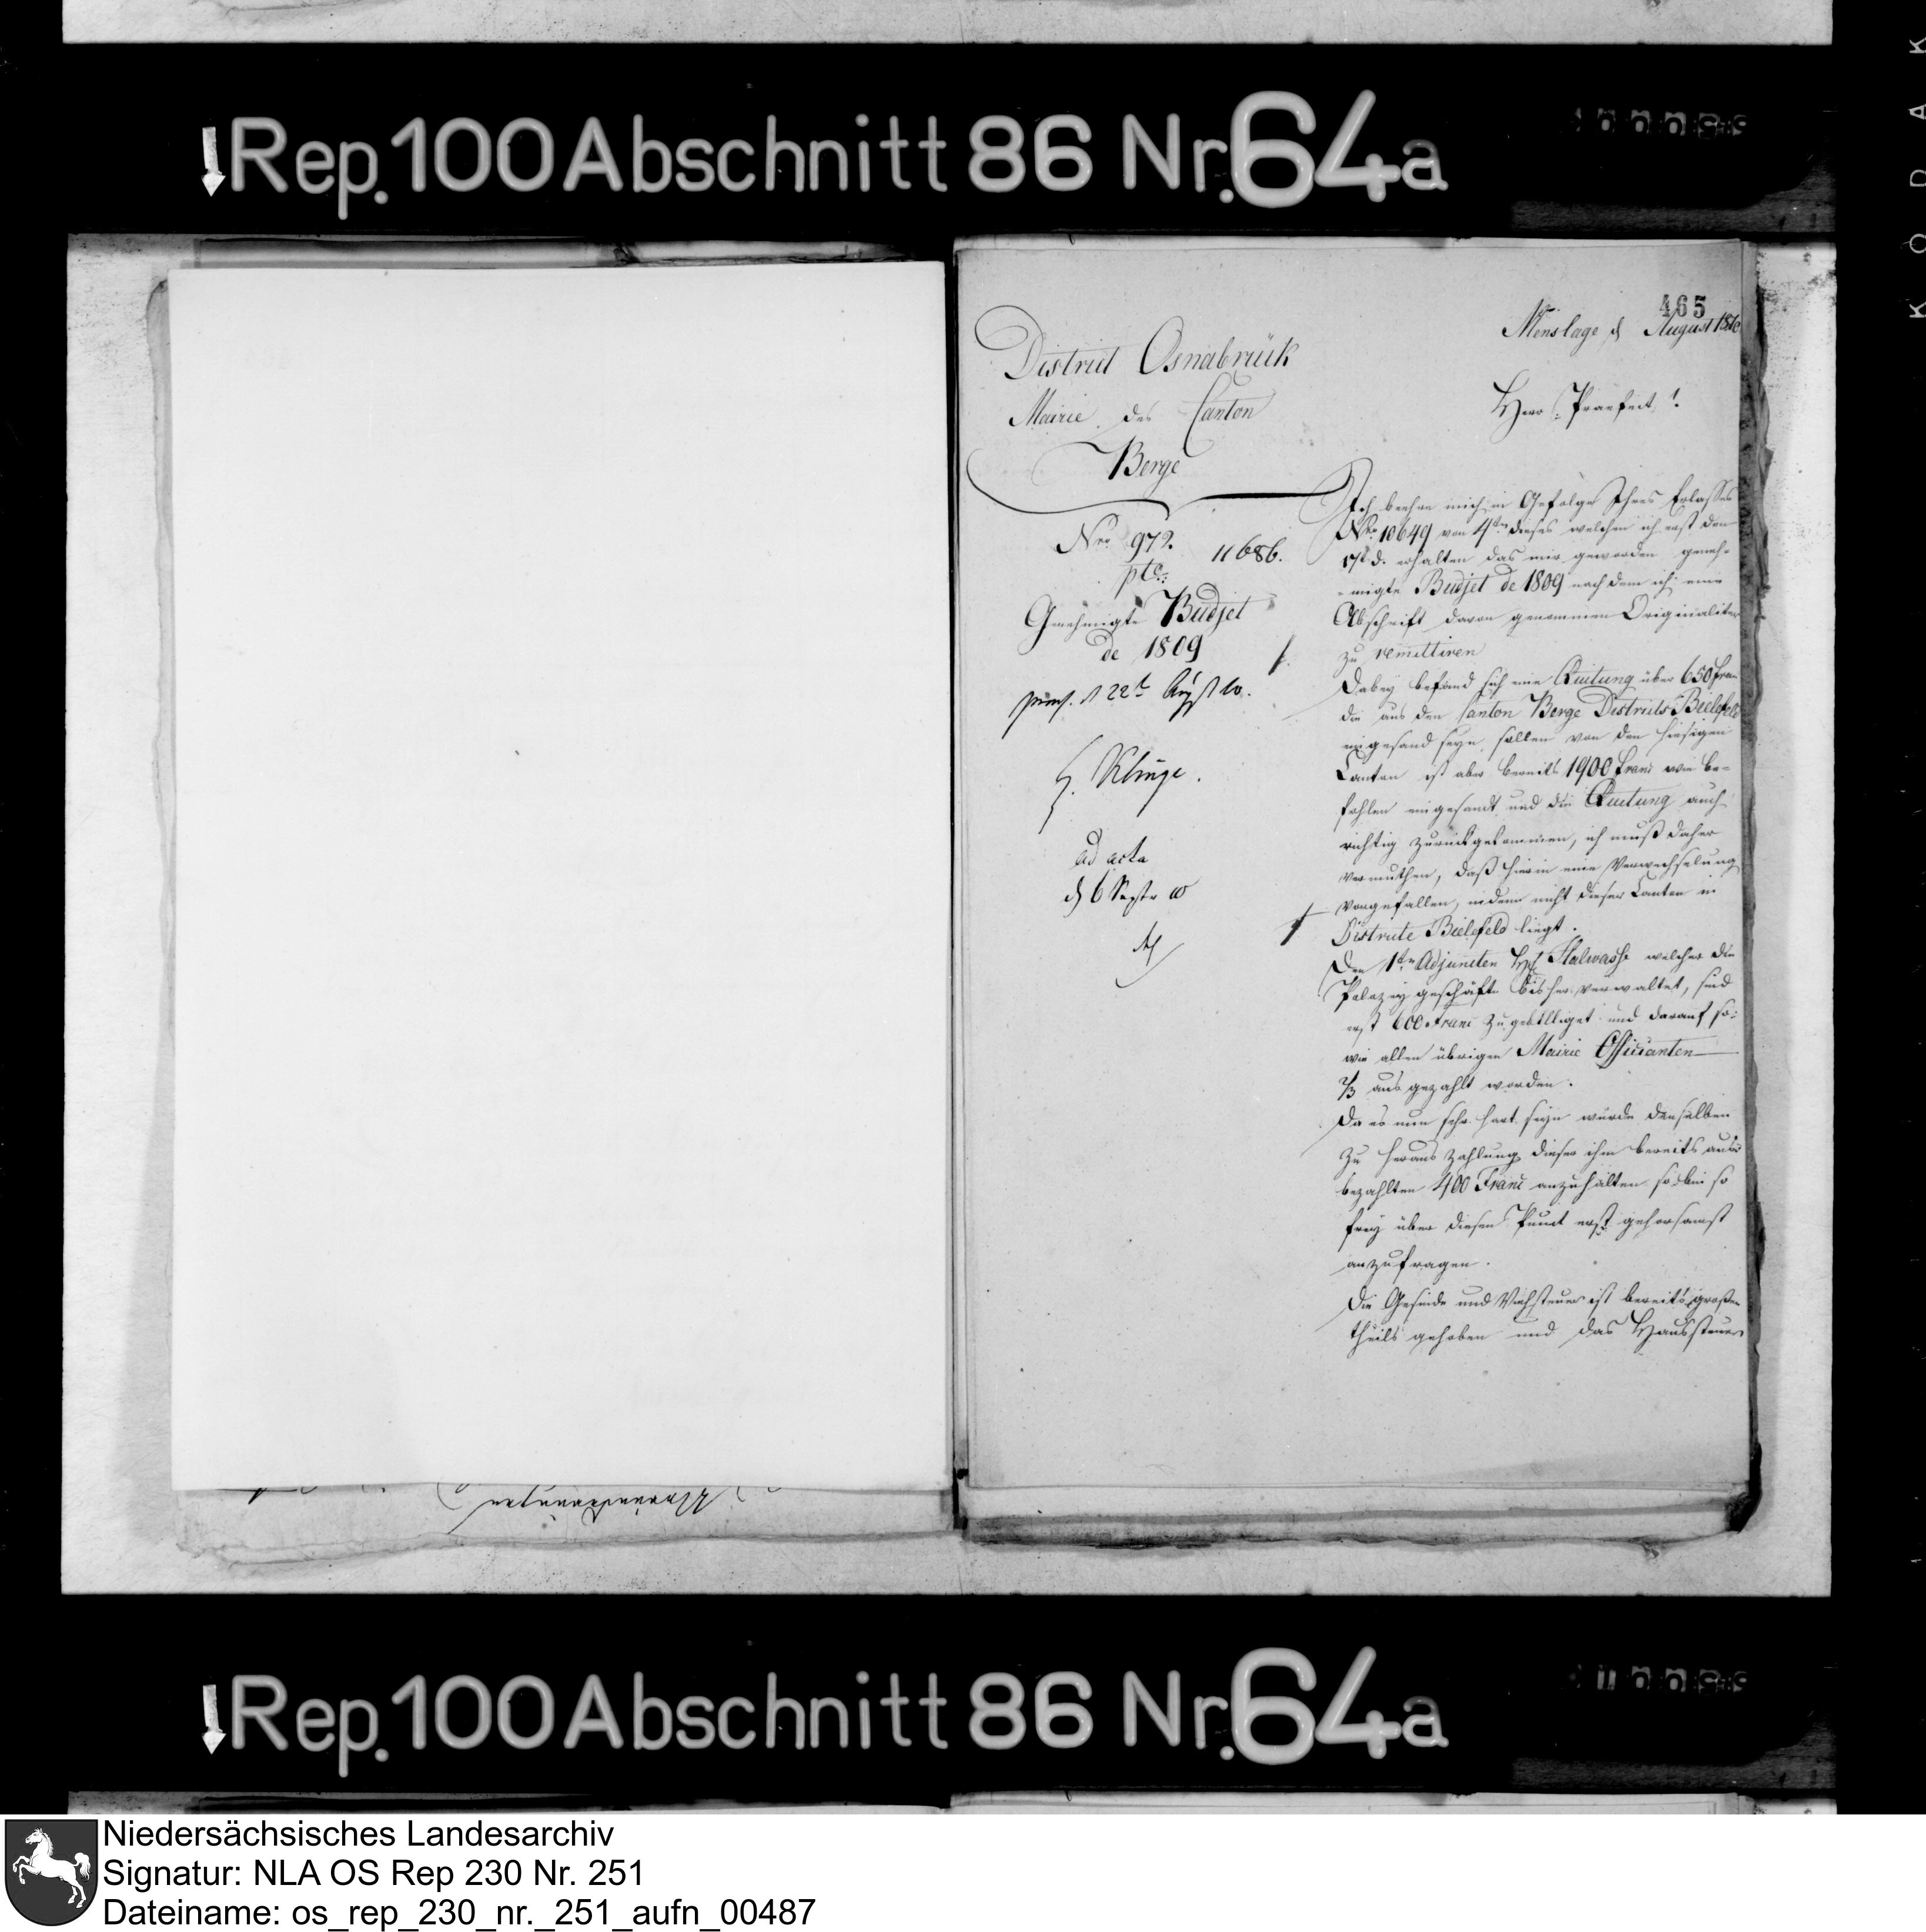 Rep. 100 Abschnitt 86 Nr. 64a
465
Menslage d August 1810
District Osnabrück
Mairie des Canton
Berge
Herr Praefect!
Nro 972. 11686.
ptc:
Genehmigte Budjet
de 1809
d 22t Augst 10.
H. Klüge.
ad acta
d 6 Septr 10
Ich beehre mich in Gefolge Ihres Erlasses
Nro 10649 von 4ten dieses welchen ich erst den
17t d. erhalten das mir gewordene geneh-
migte Budjet de 1809 nach dem ich eine
Abschrift davon genommen Originaliter
zu remittiren
Dabey befand sich eine Quitung über 650 fran
die aus den Canton Berge Districts Bielefeld
eingesand seyn sollen von den hiesigen
Canton ist aber bereits 1900 franc wie be-
fohlen eingesandt und die Quitung auch
richtig zurückgekommen, ich muß daher
vermuthen, daß hierin eine Verwechselung
vorgefallen, indem nicht dieser Canton in
Districte Bielefeld liegt.
Den 1ten Adjuncten H Halwasse welcher die
Polizey geschäfte bisher verwaltet, sind
erst 600 Franc zugebilliget und darauf so-
wie allen übrigen Mairie Officianten
2/3 aus gezahlt worden.
Da es nun sehr hart seyn würde denselben
zu heraus Zahlung dieser ihm bereits aus
bezahlten 400 Franc anzuhalten so bin so
frey über diesen Punct erst gehorsamst
anzufragen.
Die Gesinde und Viehsteuer ist bereits großen
theils gehoben und das Haussteuer
Rep. 100 Abschnitt 86 Nr. 64a
KODAK
Niedersächsisches Landesarchiv
Signatur: NLA OS Rep 230 Nr. 251
Dateiname: os_rep_230_nr._251_aufn_00487